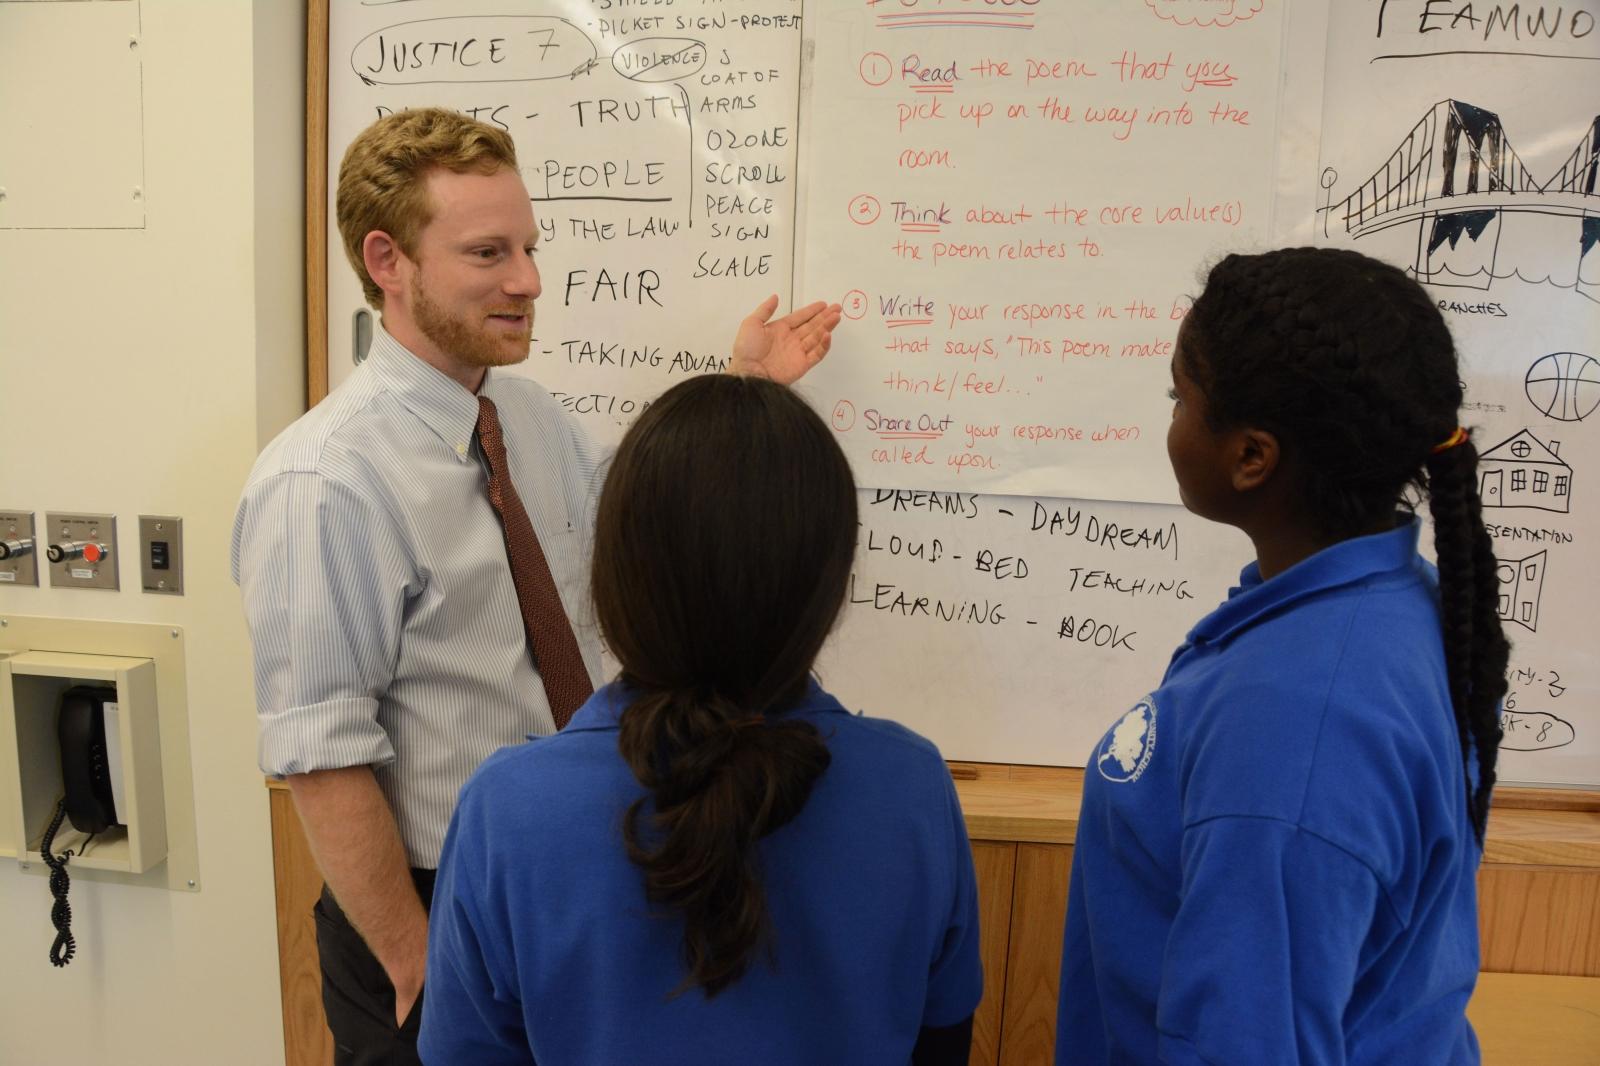 PICKET SIGN-PROTEST
JUSTICE 7
VIOLENCE
COAT OF
ARMS
TRUTH
OZONE
PEOPLE
SCROLL
PEACE
Y THE LAW
SIGN
SCALE
FAIR
-TAKING ADVAN
① Read the poem that you
pick up on the way into the
room.
② Think about the core value(s)
the poem relates to.
③ Write your response in the b
that says, "This poem make
think/feel..."
④ Share Out your response when
called upon.
DREAMS - DAYDREAM
CLOUD - BED TEACHING
LEARNING - BOOK
TEAMWO
RANCHES
ESENTATION
ITY-3
6
RK-8